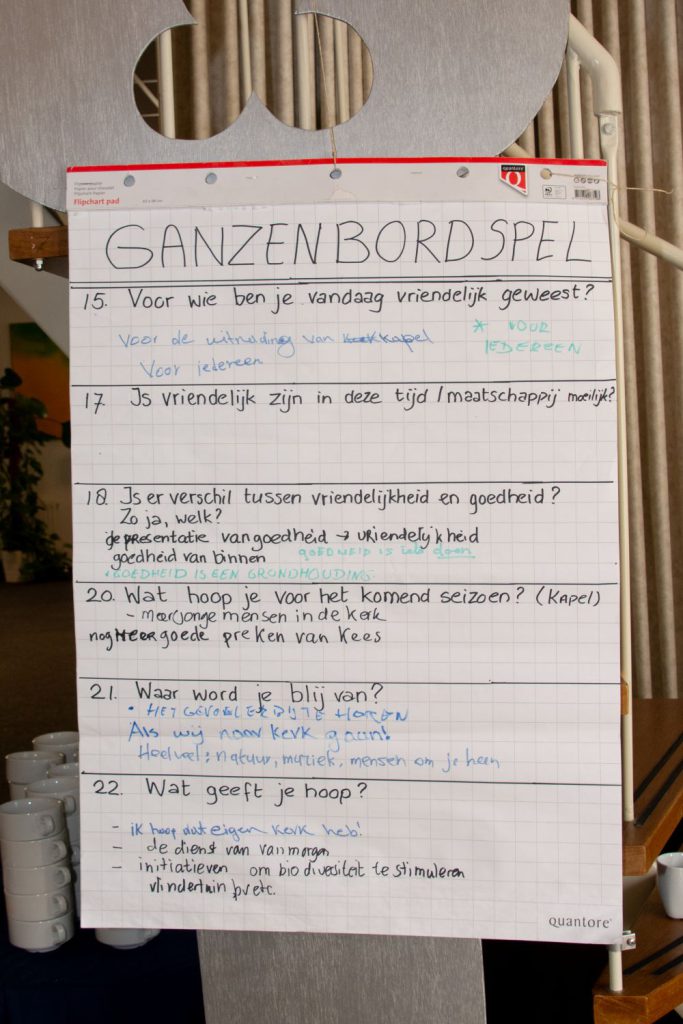 quantore
Flipchart pad
GANZENBORDSPEL
15. Voor wie ben je vandaag vriendelijk geweest?
Voor de uitnodiging van kapel
Voor iedereen
* VOOR
IEDEREEN
17. Is vriendelijk zijn in deze tijd / maatschappij moeilijk?
18. Is er verschil tussen vriendelijkheid en goedheid?
Zo ja, welk?
presentatie van goedheid → vriendelijkheid
goedheid van binnen
GOEDHEID IS iets doen
• GOEDHEID IS EEN GRONDHOUDING
20. Wat hoop je voor het komend seizoen? (KAPEL)
- meer jonge mensen in de kerk
nog MEER goede preken van Kees
21. Waar word je blij van?
• HET GEVOEL ERBIJ TE HOREN
Als wij naar kerk gaan!
Heelveel: natuur, muziek, mensen om je heen
22. Wat geeft je hoop?
- ik hoop dat eigen kerk heb!
- de dienst van vanmorgen
- initiatieven om biodiversiteit te stimuleren
vlindertuin etc.
quantore